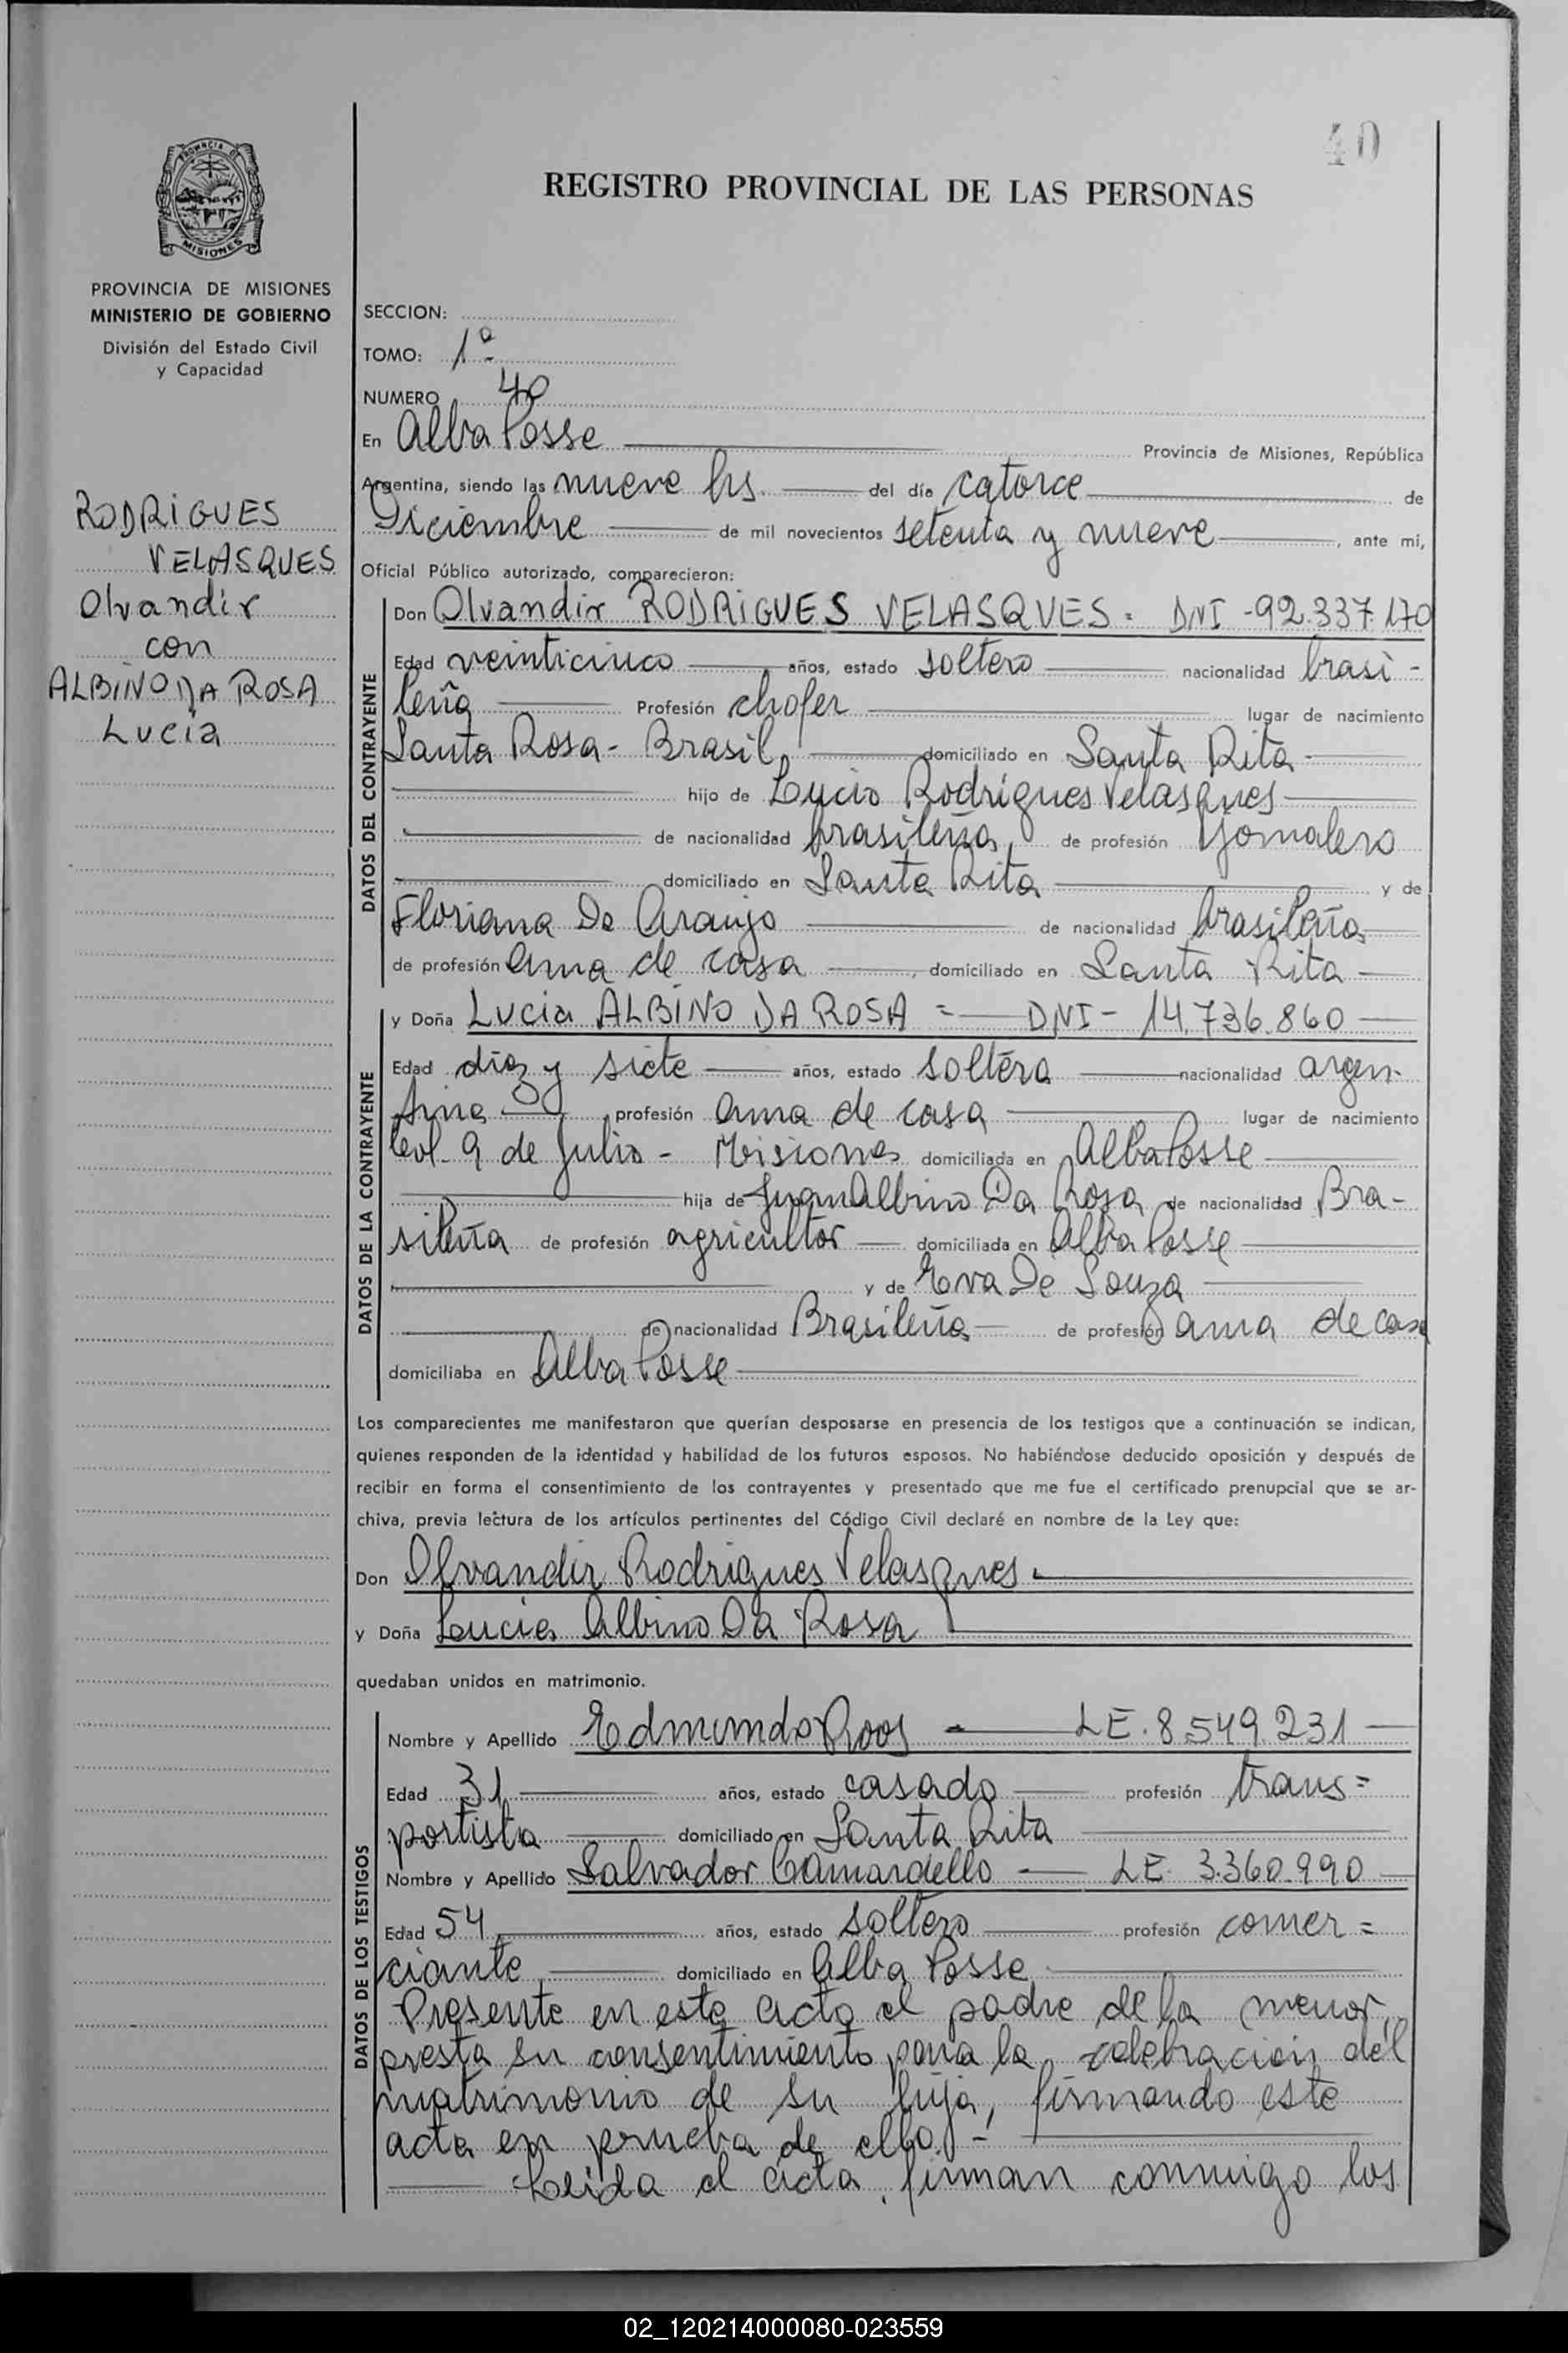 40
REGISTRO PROVINCIAL DE LAS PERSONAS
PROVINCIA DE MISIONES
PROVINCIA DE MISIONES
MINISTERIO DE GOBIERNO
División del Estado Civil
y Capacidad
RODRIGUES
VELASQUES
Olvandir
con
ALBINO DA ROSA
Lucia
SECCION:
TOMO: 1º
NUMERO 40
En Alba Posse Provincia de Misiones, República
Argentina, siendo las nueve hs. del día catorce de
Diciembre de mil novecientos setenta y nueve, ante mi,
Oficial Público autorizado, comparecieron:
DATOS DEL CONTRAYENTE
Don Olvandir RODRIGUES VELASQUES = DNI - 92.337.170
Edad veinticinco años, estado soltero nacionalidad brasi-
leña Profesión chofer lugar de nacimiento
Santa Rosa - Brasil, domiciliado en Santa Rita
hijo de Lucio Rodrigues Velasques
de nacionalidad brasileña, de profesión Jornalero
domiciliado en Santa Rita y de
Floriana De Araujo de nacionalidad brasileña
de profesión ama de casa, domiciliado en Santa Rita
DATOS DE LA CONTRAYENTE
y Doña Lucia ALBINO DA ROSA = DNI - 14.736.860
Edad diez y siete años, estado soltera nacionalidad argen-
tina, profesión ama de casa lugar de nacimiento
Col. 9 de Julio - Misiones domiciliada en Alba Posse
hija de Juan Albino Da Rosa de nacionalidad Bra-
sileña de profesión agricultor domiciliada en Alba Posse
y de Eva De Souza
de nacionalidad Brasileña de profesión ama de casa
domiciliaba en Alba Posse
Los comparecientes me manifestaron que querían desposarse en presencia de los testigos que a continuación se indican,
quienes responden de la identidad y habilidad de los futuros esposos. No habiéndose deducido oposición y después de
recibir en forma el consentimiento de los contrayentes y presentado que me fue el certificado prenupcial que se ar-
chiva, previa lectura de los artículos pertinentes del Código Civil declaré en nombre de la Ley que:
Don Olvandir Rodrigues Velasques.
y Doña Lucia Albino Da Rosa
quedaban unidos en matrimonio.
DATOS DE LOS TESTIGOS
Nombre y Apellido Edmundo Roos - LE. 8.549.231
Edad 31 años, estado casado profesión trans=
portista domiciliado en Santa Rita
Nombre y Apellido Salvador Camardello LE. 3.360.990
Edad 54 años, estado soltero profesión comer=
ciante, domiciliado en Alba Posse
Presente en este acto el padre de la menor,
presta su consentimiento para la celebración del
matrimonio de su hija, firmando este
acta en prueba de ello. -
Leida el acta, firman conmigo los
02_120214000080-023559